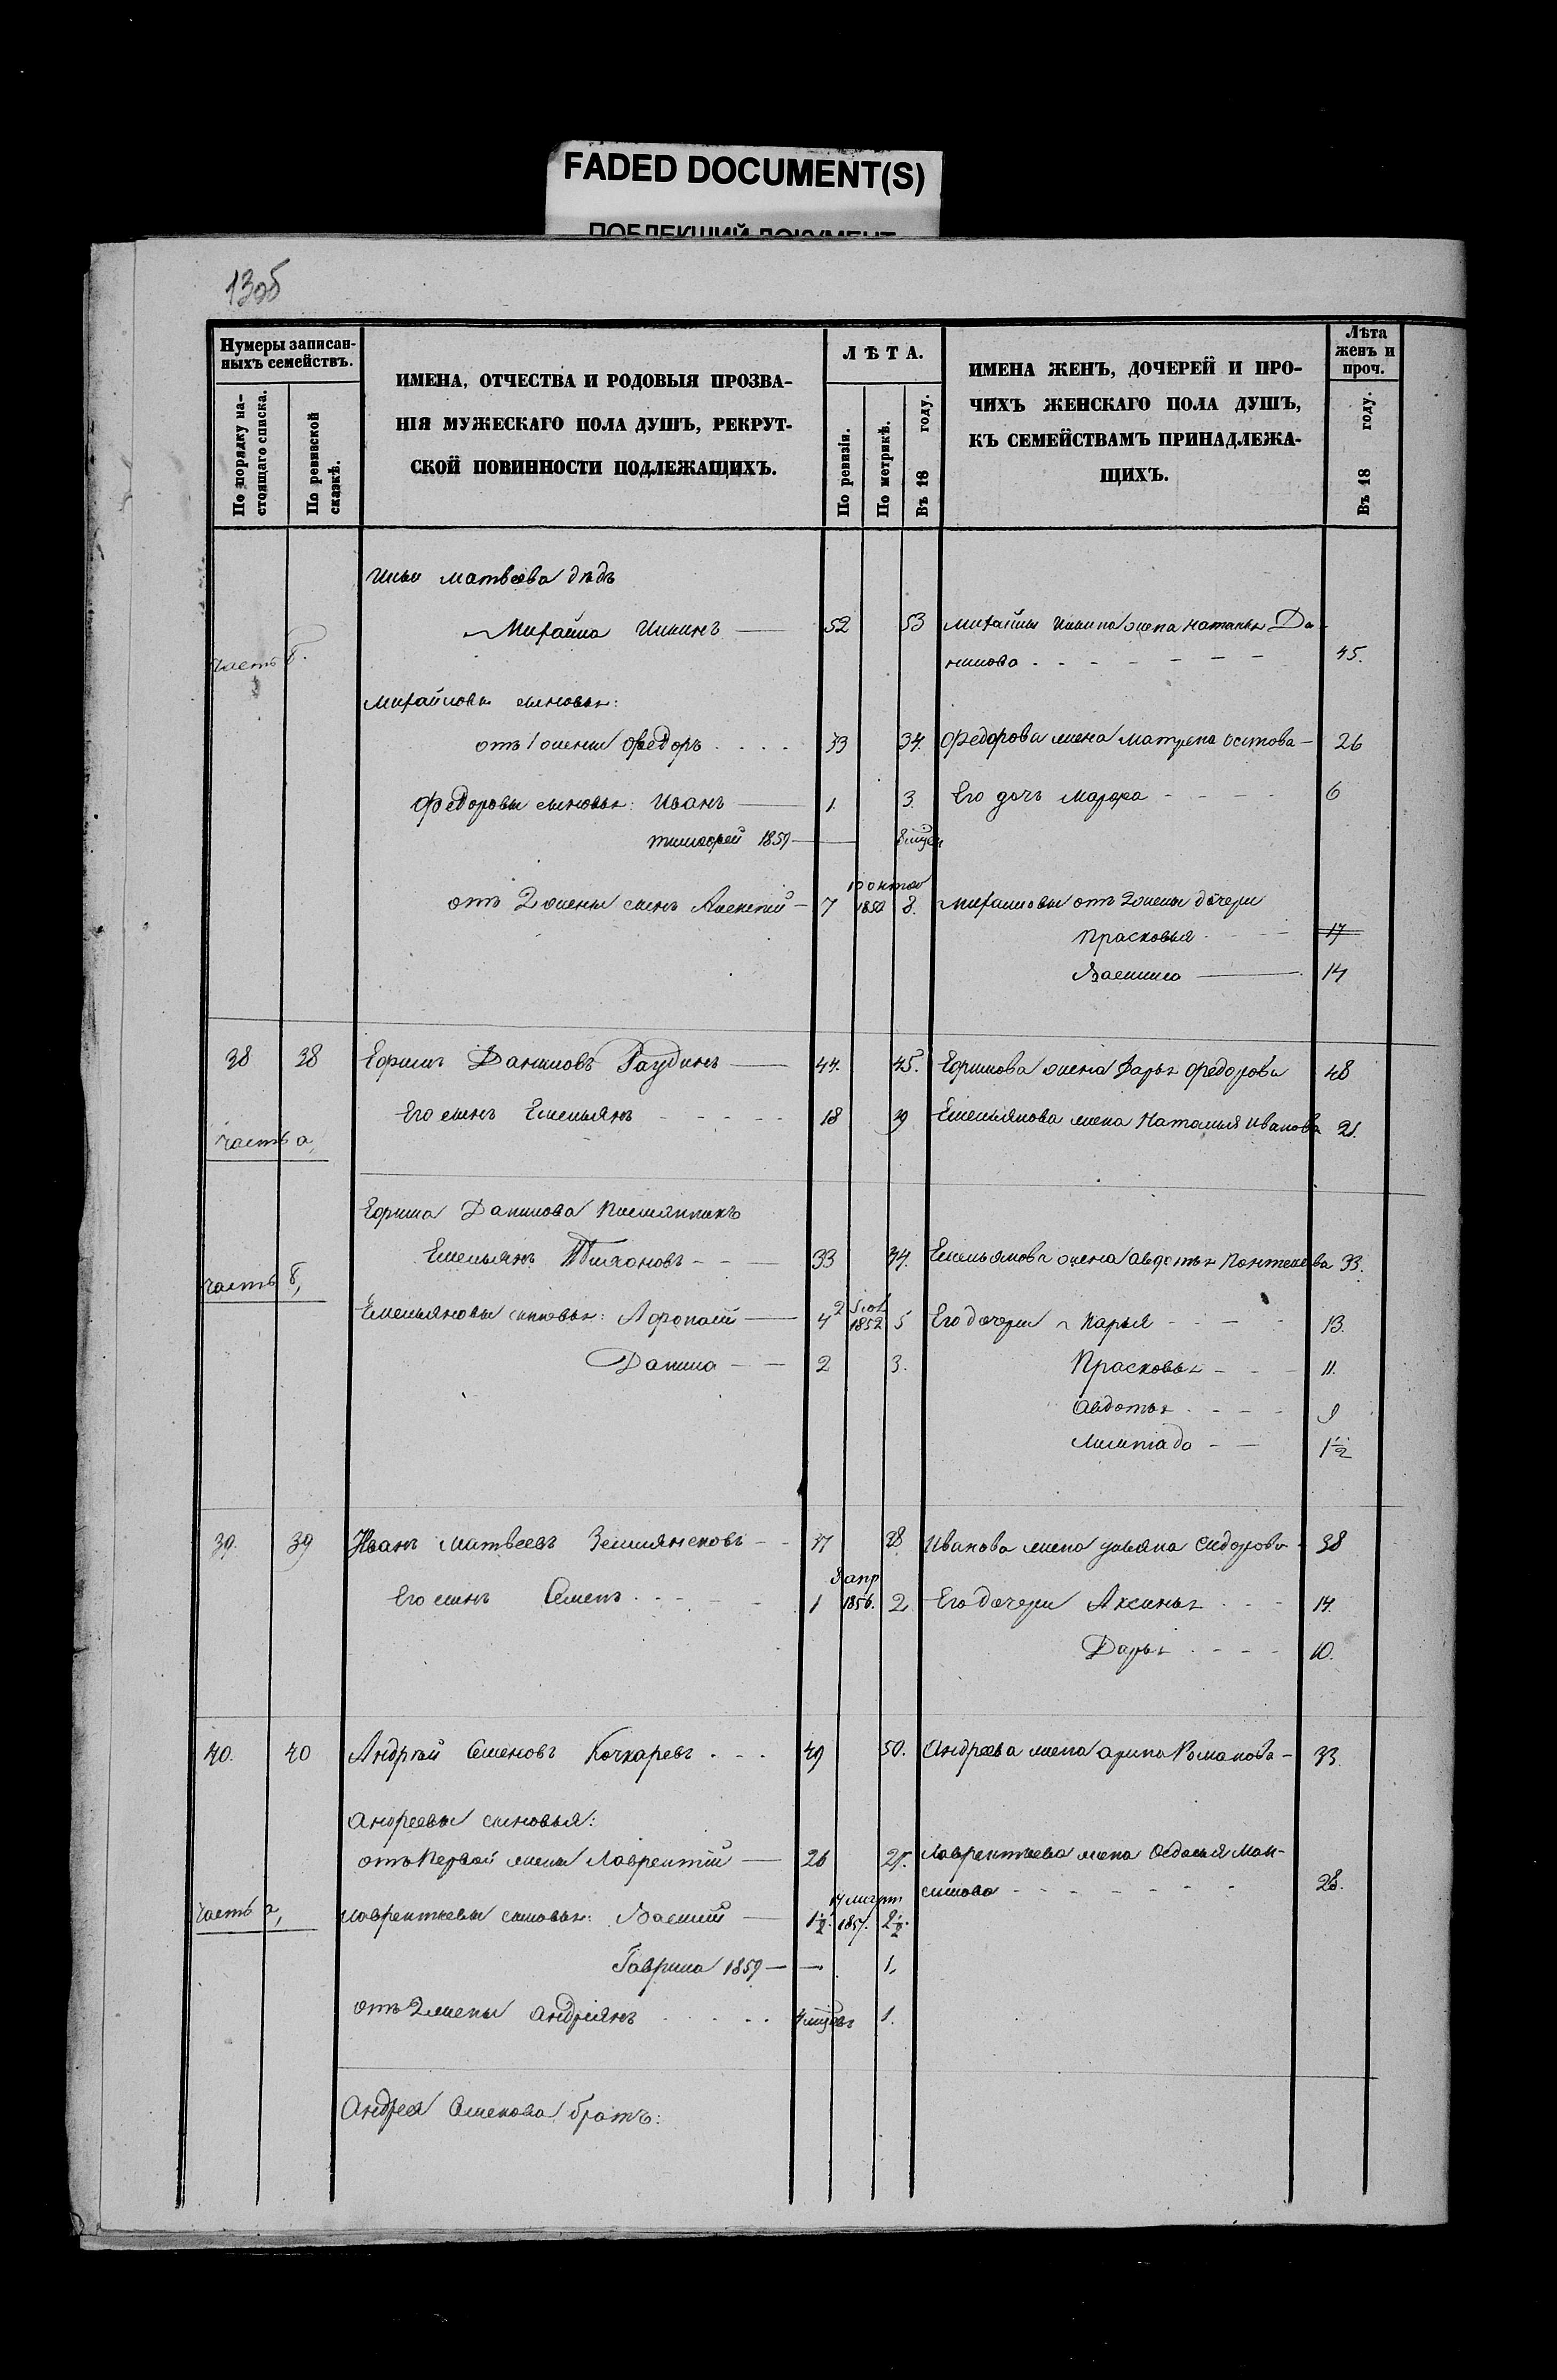 FADED DOCUMENT(S)
ПОБЛЕКШИЙ ДОКУМЕНТ
13об
Нумеры записан-
ныхъ семействъ.
По порядку на-
стоящаго списка.
По ревизской
сказкѣ.
ИМЕНА, ОТЧЕСТВА И РОДОВЫЯ ПРОЗВА-
НІЯ МУЖЕСКАГО ПОЛА ДУШЪ, РЕКРУТ-
СКОЙ ПОВИННОСТИ ПОДЛЕЖАЩИХЪ.
ЛѢТА.
По ревизіи.
По метрикѣ.
Въ 18 году.
ИМЕНА ЖЕНЪ, ДОЧЕРЕЙ И ПРО-
ЧИХЪ ЖЕНСКАГО ПОЛА ДУШЪ,
КЪ СЕМЕЙСТВАМЪ ПРИНАДЛЕЖА-
ЩИХЪ.
Лѣта
женъ и
проч.
Въ 18 году.
Ильи Матвѣева дѣдъ
Михайла Ильинъ — 52 53 Михайлы Ильина жена Наталья Да-
часть б.
нилова - - - - - - - 45.
Михайловы сыновья:
отъ 1 жены Федоръ . . . . 33 34. Федорова жена Матрена - 26
Федоровы сыновья: Иванъ — 1. 3. Его дочь Марфа - - - - 6
1859 —
10 октяб
отъ 2 жены сынъ Алексѣй - 7 1850 8. Михайловы отъ 2 жены дочери
Прасковья - - 17
Василиса — 14
38 38 Ефимъ Даниловъ — 44. 45. Ефимова жена Дарья Федорова 48
Его сынъ Емельянъ - - - - - 18 19 Емельянова жена Наталья Иванова 21.
часть а,
Ефима Данилова племянникъ
Емельянъ - - — 33 34. Емельянова жена Авдотья 33.
часть б,
Емельяновы сыновья: Афонасій — 4 1852 5 Его дочери Марья - - - - 13.
Данила - — 2 3. Прасковья - - - 11.
Авдотья . - - - 9
- — 1½
39. 39 Иванъ Матвеевъ Землянсковъ - - 37 38 Иванова жена Ульяна Сидорова - 38
3 апр
Его сынъ Семенъ . - - - - 1 1856. 2 Его дочери Аксинья . - - 14.
Дарья . - - - 10.
40. 40 Андрей Семеновъ Кочкаревъ . - . 49 50. Андреева жена Арина Романова - 33.
Андреевы сыновья:
отъ первой жены Лаврентій — 26 27. Лаврентьева жена Федосья Мак-
симова - - - - - - - 28.
часть а,
14 март
Лаврентьевы сыновья: Василій — 1½. 1857. 2½.
Гаврила 1859 — — 1.
отъ 2 жены Андріянъ . . . . . 1.
Андрея Семенова братъ: